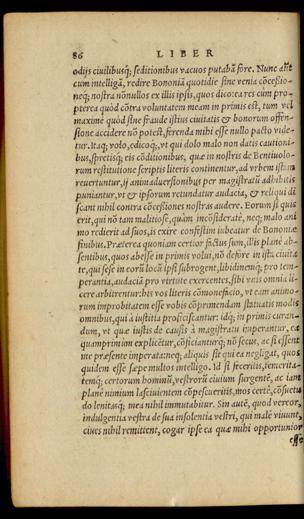 86 LIBER
odijs ciuilibusq; seditionibus vacuos putabã fore. Nunc aũt
cum intelligã, redire Bononiã quotidie sine venia cõcessio-
neq; nostra nõnullos ex illis ipsis, quos dico: ea res cùm pro-
pterea quòd cõtra voluntatem meam in primis est, tum vel
maximè quòd sine fraude istius ciuitatis & bonorum offen-
sione accidere nõ potest, ferenda mihi esse nullo pacto vide-
tur. Itaq; volo, edicoq;, vt qui dolo malo non datis cautioni-
bus, spretisq; eis cõditionibus, quæ in nostris de Bentiuolo-
rum restitutione scriptis literis continentur, ad vrbem istam
reuertuntur, ij animaduersionibus per magistratũ adhibitis
puniantur, vt & ipsorum retundatur audacia, & reliqui di
scant nihil contra cõcessiones nostras audere. Eorum si quis
erit, qui nõ tam malitiosè, quàm incõsideratè, neq; malo ani
mo redierit ad suos, is exire confestim iubeatur de Bononiæ
finibus. Præterea quoniam certior factus sum, illis planè ab-
sentibus, quos abesse in primis volui, nõ deesse in ista ciuita
te, qui sese in eorũ locũ ipsi subrogent, libidinemq; pro tem-
perantia, audaciã pro virtute exercentes, sibi veis omnia li-
cere arbitrentur: his vos literis cõmonefacio, vt eam animo-
rum improbitatem esse vobis cõprimendam statuatis modis
omnibus, qui à iustitia proficiscantur: idq; in primis curan-
dum, vt quæ iustis de causis à magistratu imperantur, ea
quamprimum explicẽtur, cõficianturq; nõ secus, ac si essent
me præsente imperata: neq; aliquis sit qui ea negligat, quos
quidem esse sæpe multos intelligo. Id si feceritis, temerita-
temq; certorum hominũ, vestrorũ ciuium surgentẽ, ac iam
planè nimium lasciuientem cõpescueritis, mos certè, cõsuetu
do lenitasq; mea nihil immutabitur. Sin autẽ, quod vereor,
indulgentia vestra de sua insolentia vestri, qui malè viuunt,
ciues nihil remittent, cogar ipse ea quæ mihi opportunior
esse